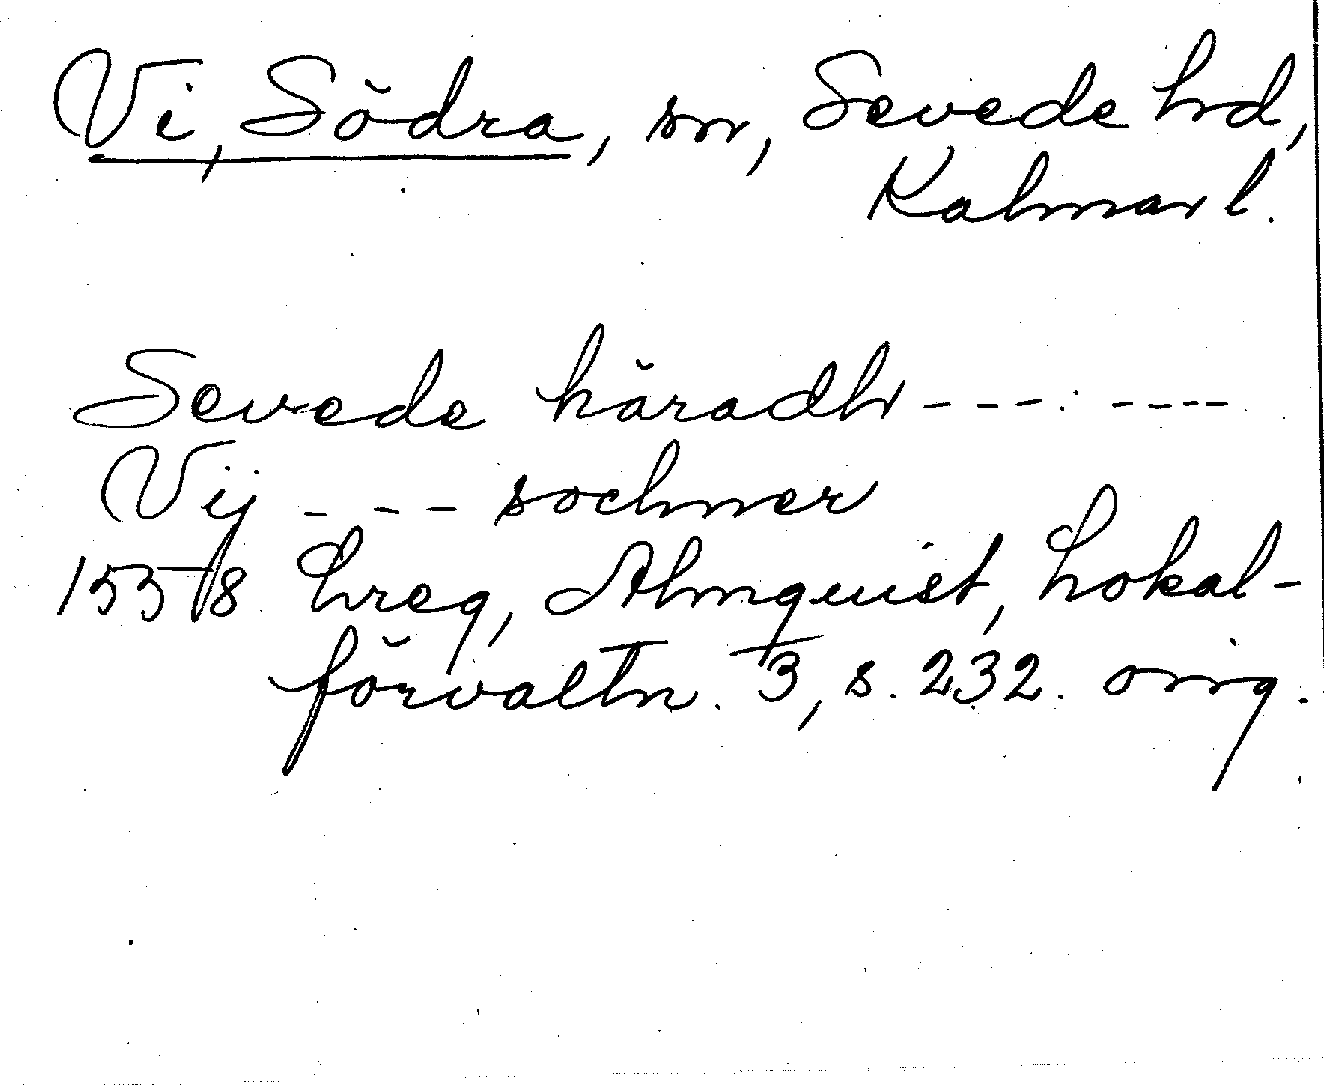 Vi, Södra, sn, Sevede hd,
Kalmar l.
Sevede häradh --- ----
Vij --- sochner
1558 hreg, Almquist, Lokal-
förvaltn. 3, s. 232. orig.